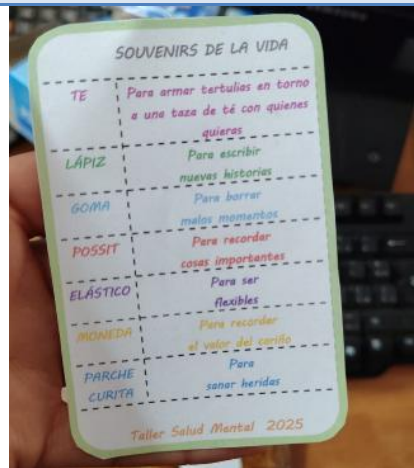 SOUVENIRS DE LA VIDA
TE
Para armar tertulias en torno
a una taza de té con quienes
quieras
LÁPIZ
Para escribir
nuevas historias
GOMA
Para borrar
malos momentos
POSSIT
Para recordar
cosas importantes
ELÁSTICO
Para ser
flexibles
MONEDA
Para recorder
el valor del cariño
PARCHE
CURITA
Para
sanar heridas
Taller Salud Mental 2025